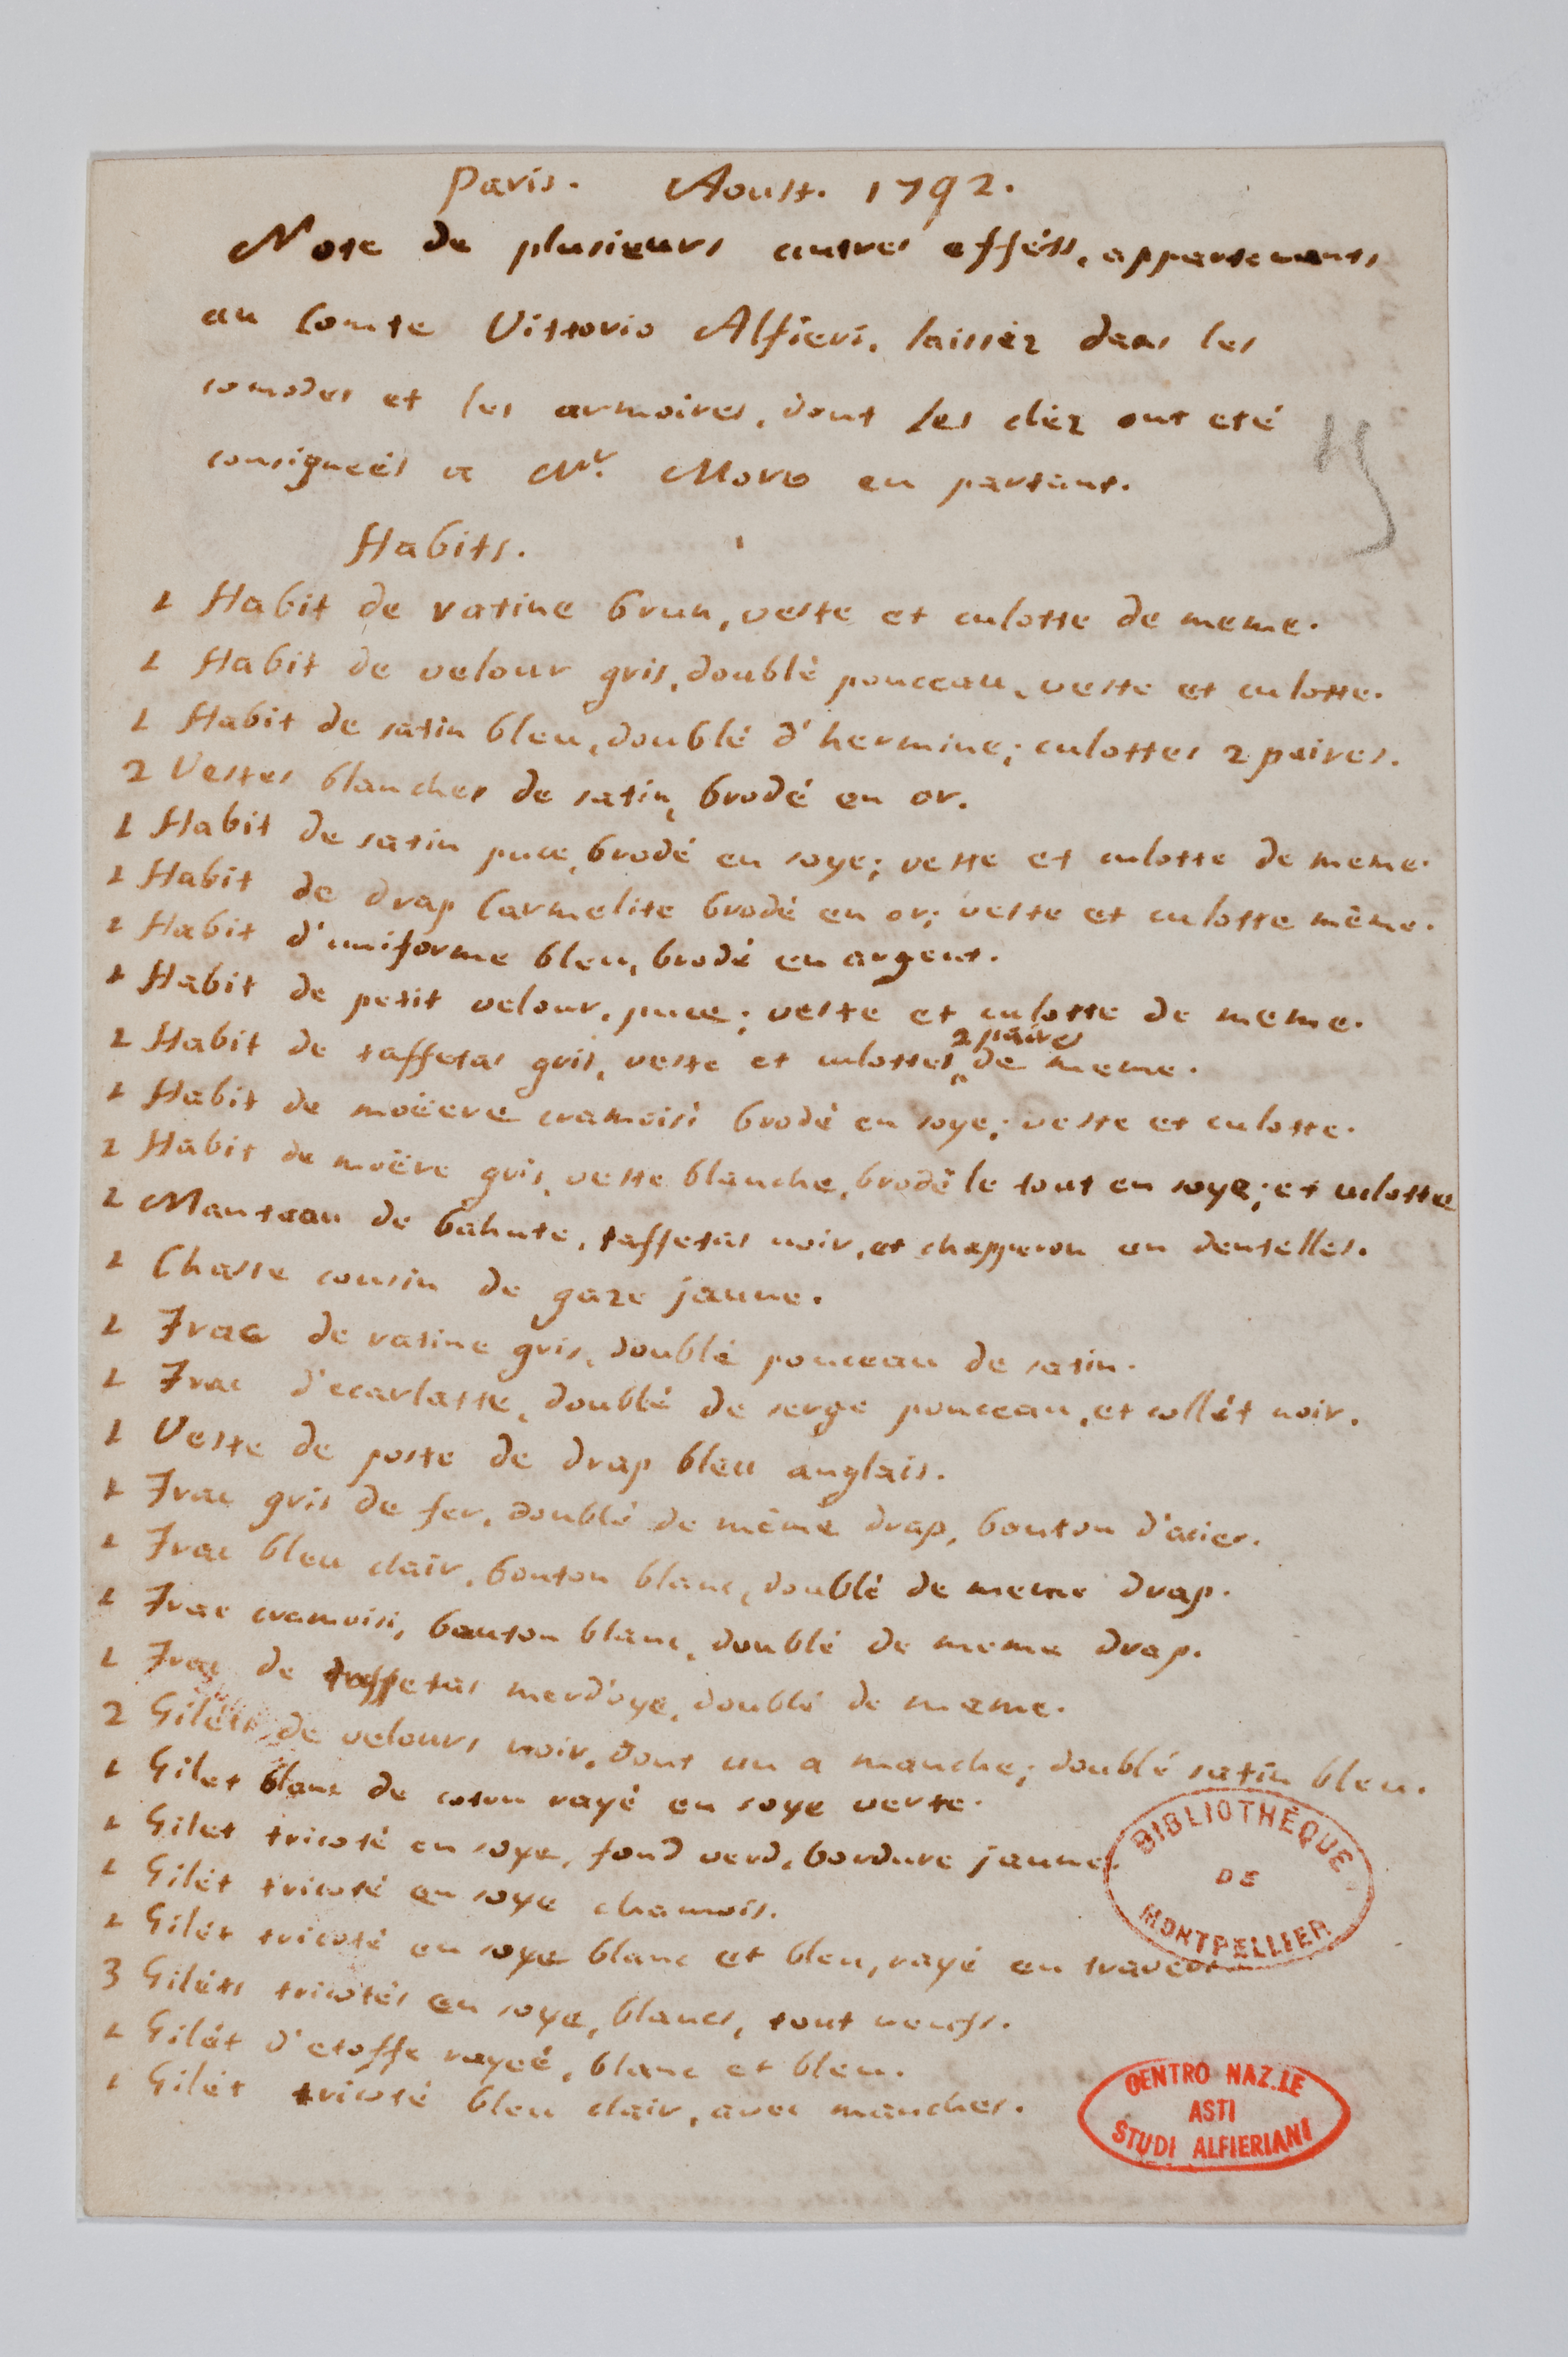 Paris. Aoust. 1792.
Note de plusieurs autres efféts, appartenants
au Comte Vittorio Alfieri, laissèz dans les
comodes et les armoires, dont les clèz ont eté
consigneés a Mr. Moro en partant.
Habits.
1 Habit de ratine brun, veste et culotte de meme.
1 Habit de velour gris, doublè ponceau, veste et culotte.
1 Habit de satin bleu, doublé d'hermine; culottes 2 paires.
2 Vestes blanches de satin, brodé en or.
1 Habit de satin puce, brodé en soye; veste et culotte de meme.
1 Habit de drap Carmelite brodé en or; veste et culotte même.
1 Habit d'uniforme bleu, brodé en argent.
1 Habit de petit velour, puce; veste et culotte de meme.
2 paires
1 Habit de taffetas gris, veste et culottes de meme.
1 Habit de moëere cramoisi brodé en soye; veste et culotte.
1 Habit de moëre gris, veste blanche, brodé le tout en soye; et culotte
1 Manteau de bahute, taffetas noir, et chapperon en dentelles.
1 Chasse cousin de gaze jaune.
1 Frac de ratine gris, doublé ponceau de satin.
1 Frac d'ecarlatte, doublé de serge ponceau, et collét noir.
1 Veste de poste de drap bleu anglais.
1 Frac gris de fer, doublé de même drap, bouton d'acier.
1 Frac bleu clair, bouton blanc, doublé de meme drap.
1 Frac cramoisi, bouton blanc, doublé de meme drap.
1 Frac de taffetas merd'oye, doublé de meme.
2 Giléts de velours noir, dont un a manche; doublé satin bleu.
1 Gilet blanc de coton rayé en soye verte.
1 Gilet tricoté en soye, fond verd, bordure jaune.
1 Gilét tricoté en soye chamois.
1 Gilét tricoté en soye blanc et bleu, rayé en travers
3 Giléts tricotés en soye, blancs, tout neufs.
1 Gilét d'etoffe rayeé, blanc et bleu.
1 Gilét tricoté bleu clair, avec manches.
BIBLIOTHÈQUE
DE
MONTPELLIER
CENTRO NAZ.LE
ASTI
STUDI ALFIERIANI